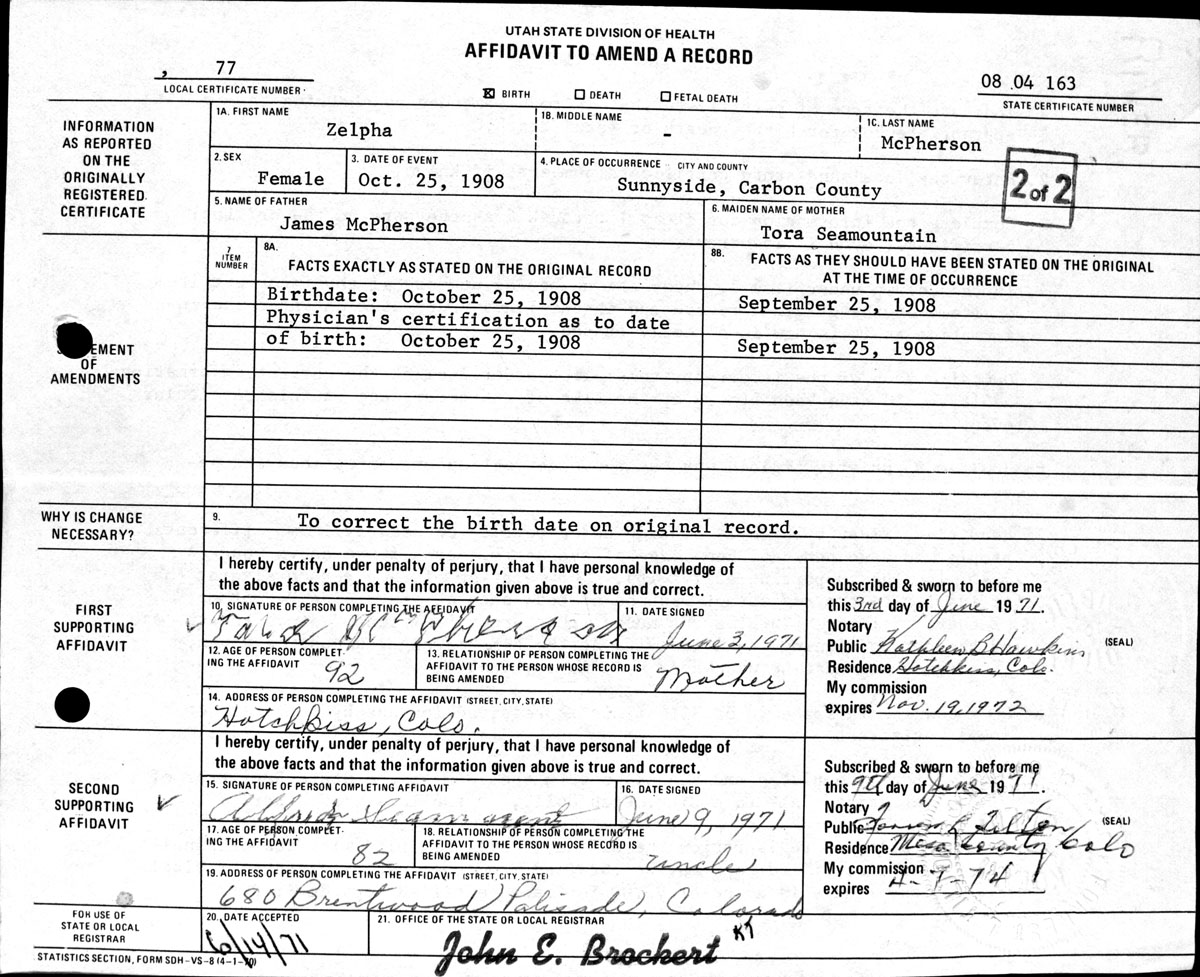 UTAH STATE DIVISION OF HEALTH
AFFIDAVIT TO AMEND A RECORD
, 77
LOCAL CERTIFICATE NUMBER
☒ BIRTH ☐ DEATH ☐ FETAL DEATH
08 04 163
STATE CERTIFICATE NUMBER
INFORMATION AS REPORTED ON THE ORIGINALLY REGISTERED CERTIFICATE
1A. FIRST NAME
Zelpha
1B. MIDDLE NAME
-
1C. LAST NAME
McPherson
2. SEX
Female
3. DATE OF EVENT
Oct. 25, 1908
4. PLACE OF OCCURRENCE CITY AND COUNTY
Sunnyside, Carbon County
2 of 2
5. NAME OF FATHER
James McPherson
6. MAIDEN NAME OF MOTHER
Tora Seamountain
EMENT OF AMENDMENTS
7 ITEM NUMBER
8A.
FACTS EXACTLY AS STATED ON THE ORIGINAL RECORD
8B.
FACTS AS THEY SHOULD HAVE BEEN STATED ON THE ORIGINAL
AT THE TIME OF OCCURRENCE
Birthdate: October 25, 1908
September 25, 1908
Physician's certification as to date
of birth: October 25, 1908
September 25, 1908
WHY IS CHANGE NECESSARY?
9. To correct the birth date on original record.
FIRST SUPPORTING AFFIDAVIT
I hereby certify, under penalty of perjury, that I have personal knowledge of
the above facts and that the information given above is true and correct.
10. SIGNATURE OF PERSON COMPLETING THE AFFIDAVIT
McPherson
11. DATE SIGNED
June 3, 1971
12. AGE OF PERSON COMPLETING THE AFFIDAVIT
92
13. RELATIONSHIP OF PERSON COMPLETING THE AFFIDAVIT TO THE PERSON WHOSE RECORD IS BEING AMENDED
Mother
14. ADDRESS OF PERSON COMPLETING THE AFFIDAVIT (STREET, CITY, STATE)
Hotchkiss, Colo.
Subscribed & sworn to before me
this 3rd day of June 1971.
Notary
Public Kathleen B Hawkins (SEAL)
Residence Hotchkiss, Colo.
My commission
expires Nov. 19, 1972
SECOND SUPPORTING AFFIDAVIT
I hereby certify, under penalty of perjury, that I have personal knowledge of
the above facts and that the information given above is true and correct.
15. SIGNATURE OF PERSON COMPLETING AFFIDAVIT
16. DATE SIGNED
June 9, 1971
17. AGE OF PERSON COMPLETING THE AFFIDAVIT
82
18. RELATIONSHIP OF PERSON COMPLETING THE AFFIDAVIT TO THE PERSON WHOSE RECORD IS BEING AMENDED
uncle
19. ADDRESS OF PERSON COMPLETING THE AFFIDAVIT (STREET, CITY, STATE)
680 Brentwood Palisade, Colorado
Subscribed & sworn to before me
this 9th day of June 1971.
Notary
Public L Tilton (SEAL)
Residence Mesa County Colo
My commission
expires 4-7-74
FOR USE OF STATE OR LOCAL REGISTRAR
20. DATE ACCEPTED
6/14/71
21. OFFICE OF THE STATE OR LOCAL REGISTRAR
John E. Brockert KT
STATISTICS SECTION, FORM SDH-VS-8 (4-1-70)